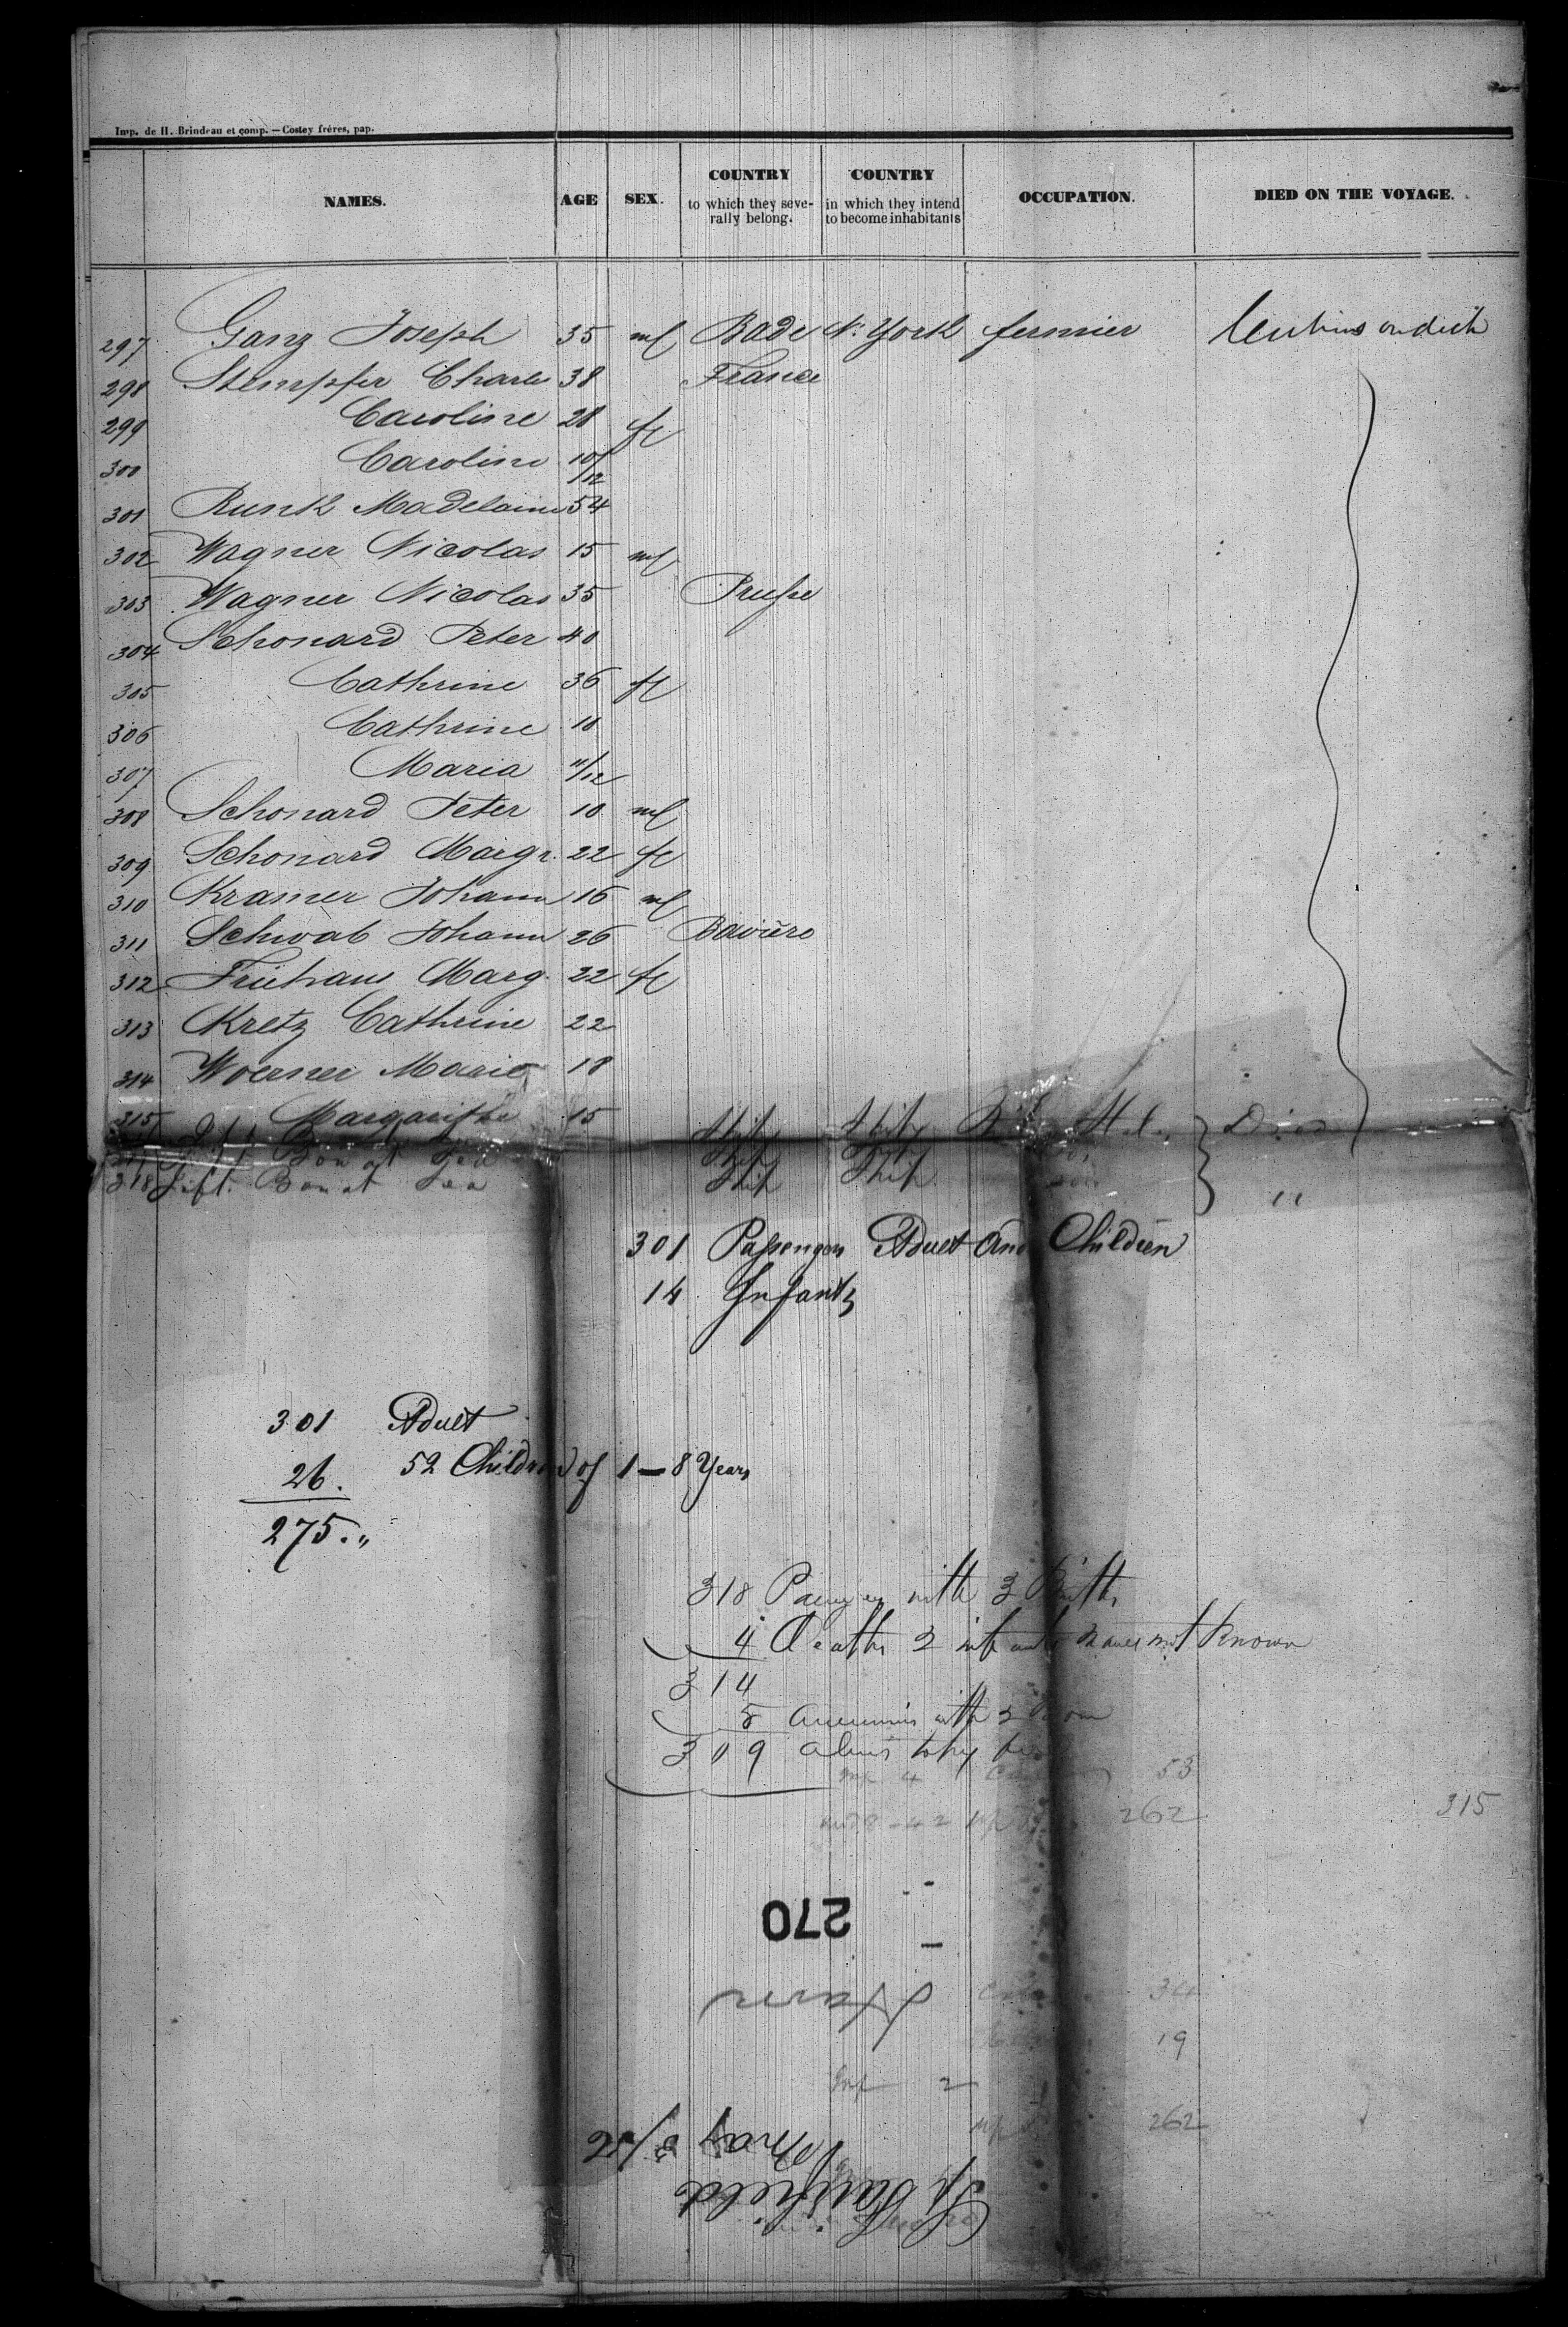 Imp. de H. Brindeau et comp. — Costey frères, pap.
NAMES. AGE SEX. COUNTRY to which they seve- rally belong. COUNTRY in which they intend to become inhabitants OCCUPATION. DIED ON THE VOYAGE.
297 Ganz Joseph 35 ml Bade N. York fermier
298 Stempfer Charles 38 France
299 Caroline 28 fe
300 Caroline 10/12
301 Runk Madelaine 54
302 Wagner Nicolas 15 ml
303 Wagner Nicolas 35 Prusse
304 Schonard Peter 40
305 Cathrine 36 fe
306 Cathrine 10
307 Maria 11/12
308 Schonard Peter 10 ml
309 Schonard Margr. 22 fe
310 Kramer Johann 16 ml
311 Schwab Johann 26 Bavière
312 Friehaus Marg. 22 fe
313 Kretz Cathrine 22
314 Woerner Marie 18
315 Margarithe 15
Born at Sea Ship Ship Died
318 Born at Sea Ship Ship "
301 Passengers Adult and Children
14 Infants
301 Adult
26. 52 Children of 1 — 8 Years
275. "
318 with 3 Births
4 Deaths 2 infants names not known
314
5 with
309
Inf 4 53
262
315
270
Havre
34
19
Inf 2
262
May 3/52
Sp Fairfield